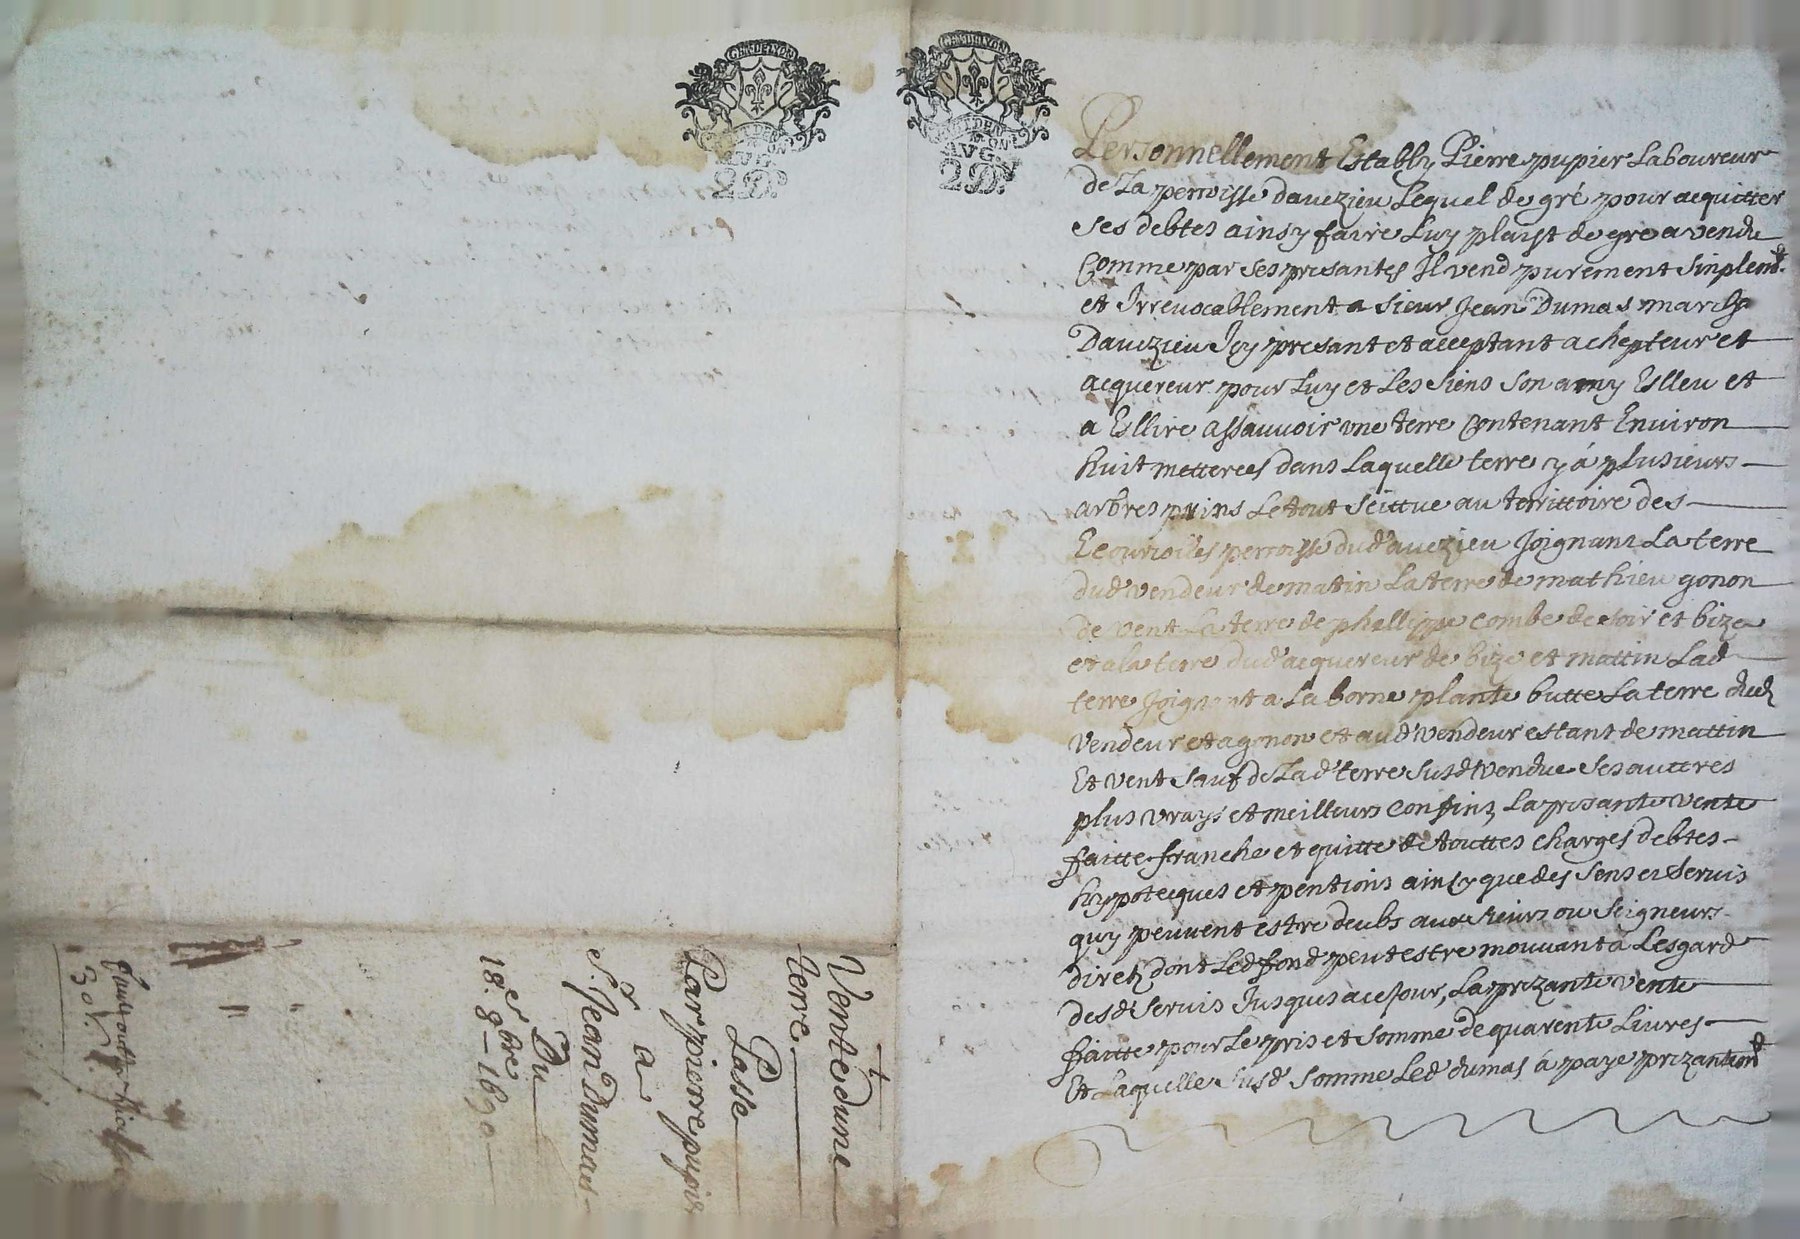 GEN DE LYON
MOY DEN
ON
AVG
2 D.
GEN DE LYON
MOY DEN
ON
AVG
2 D.
Personnellement Estably Pierre pupier Laboureur
de La perroisse davezieu Lequel de gré pour acquitter
ses debtes ainsy faire Luy plaist de gre a vendu
Comme par ses presantes Il vend purement sinplemt
et Irrevocablement a sieur Jean Dumas march
Davezieu Icy presant et acceptant achepteur et
acquereur pour Luy et Les siens son amy Esleu et
a Ellire assauvoir une terre Contenant Environ
huit metterees dans Laquelle terre y á plusieurs
arbres pins Le tout scittue au territtoire des
perroisse dud' avezieu Joignant La terre
dud' vendeur de matin La terre de mathieu gonon
de vent La terre de phellippe Combe de soir et bize
et a la terre dud' acquereur de bize et mattin Lad'
terre Joignant a La borne plante butte La terre dud
vendeur et a gonon et aud' vendeur estant de mattin
Et vent sauf de Lad' terre susd' vendue ses auttres
plus vrays et meilleurs Confins La presante vente
faitte franche et quitte de touttes charges debtes
hypotecques et pentions ainsy que des sens et servis
quy peuvent estre deubs aux sieurs ou seigneurs
direts dont Led' fond peut estre mouvant á Lesgard
desd' servis Jusques a ce Jour, La prezante vente
faitte pour Le pris et somme de quarente Livres
Et Laquelle susd' somme Led' dumas á paye prezantemt
Vente dune
terre
Passe
Par pierre pupier
a
Sr. Jean Dumas
Du
18e. 8bre 1690